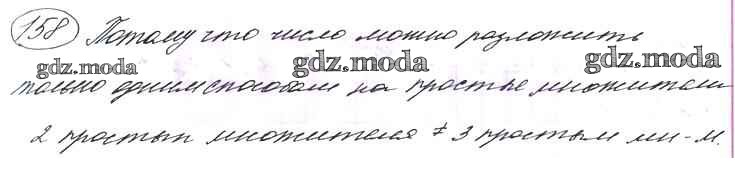 158 Потому что число можно разложить
gdz.moda gdz.moda gdz.moda
только одним способом на простые множители
2 простых множителя ≠ 3 простым мн-м.